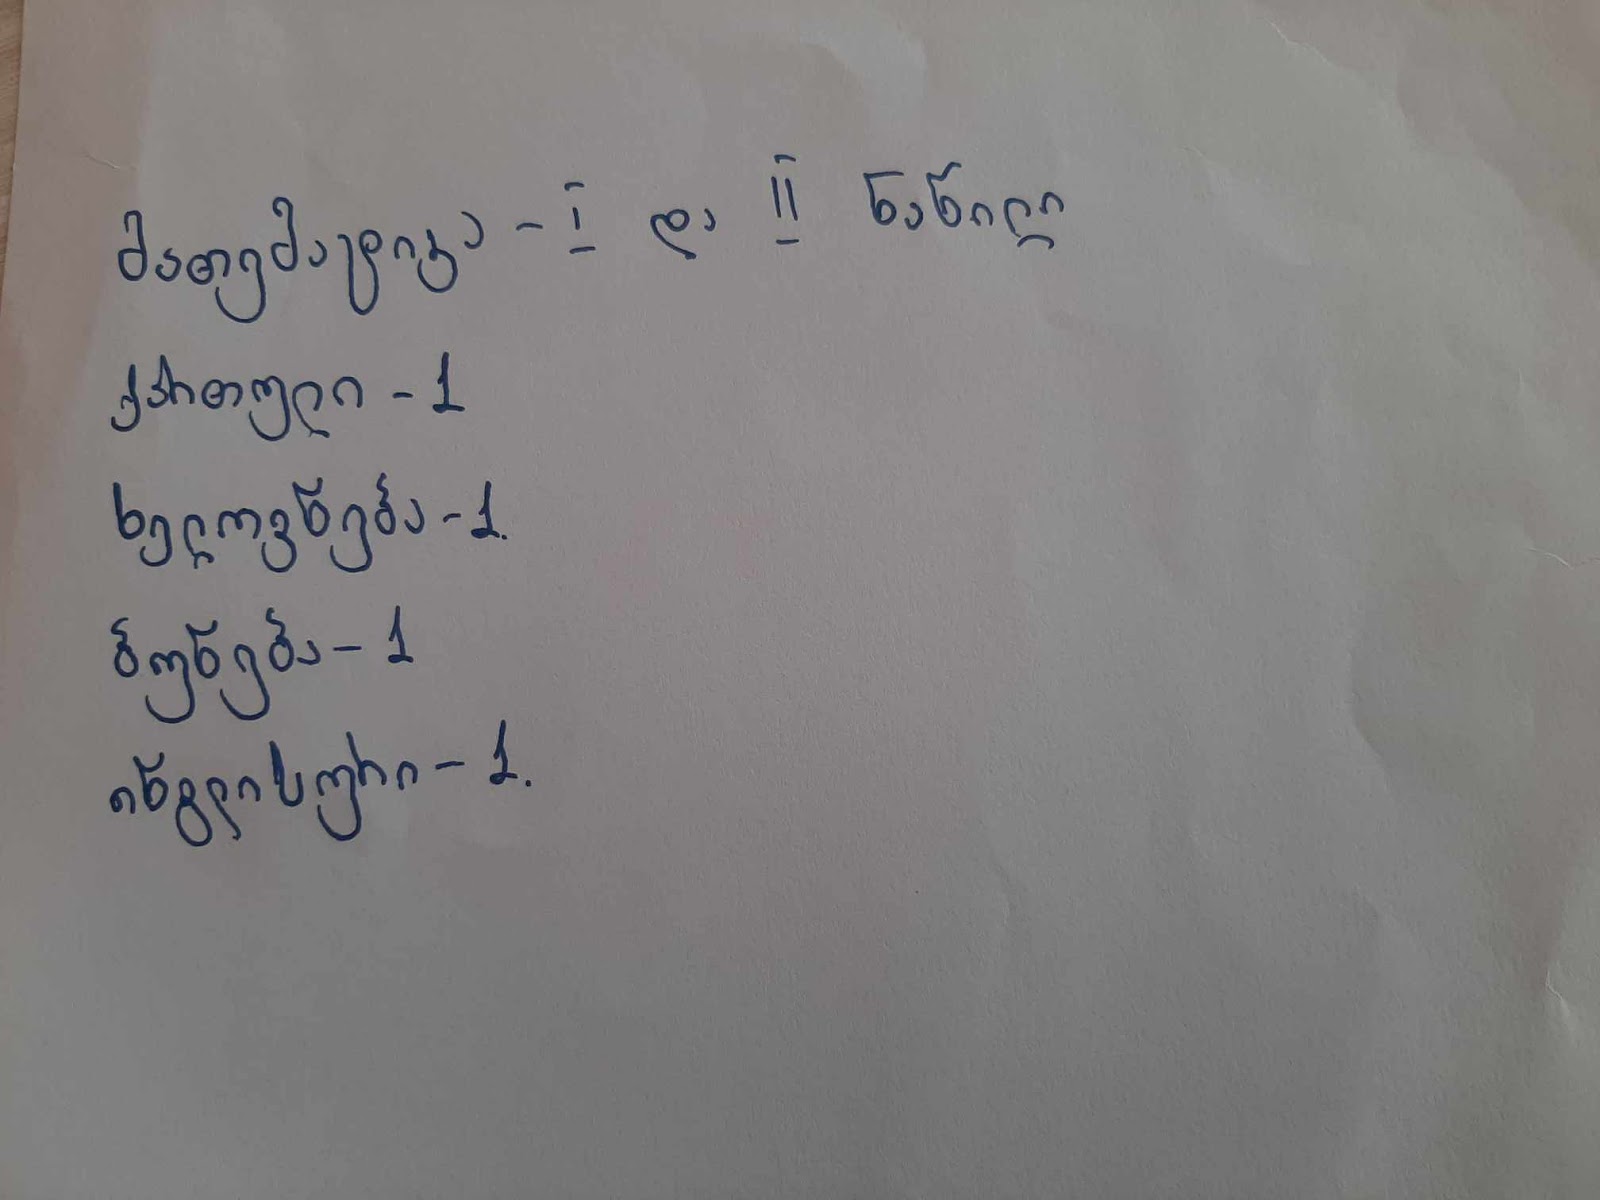 მათემატიკა - I და II ნაწილი
ქართული - 1
ხელოვნება - 1.
ბუნება - 1
ინგლისური - 1.